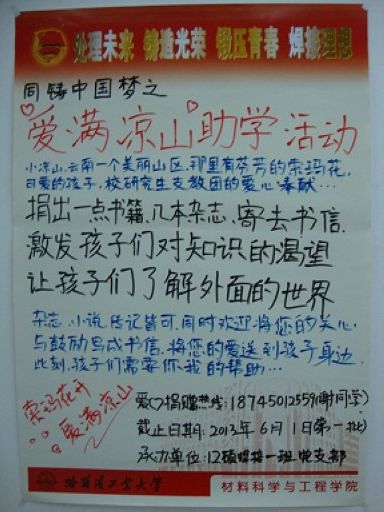 处理未来 铸造光荣 锻压青春 焊接理想
同铸中国梦之
爱满凉山助学活动
小凉山,云南一个美丽山区,那里有芬芳的索玛花,
可爱的孩子,校研究生支教团的爱心奉献…
捐出一点书籍、几本杂志、寄去书信
激发孩子们对知识的渴望
让孩子们了解外面的世界
杂志、小说、传记皆可,同时欢迎将您的关心
与鼓励写成书信,将您的爱送到孩子身边
此刻,孩子们需要你我的帮助…
索玛花开
爱满凉山
爱♡捐赠热线:18745012559(谢同学)
截止日期:2013年6月1日(第一批)
承办单位:12硕焊接一班党支部
哈尔滨工业大学
材料科学与工程学院